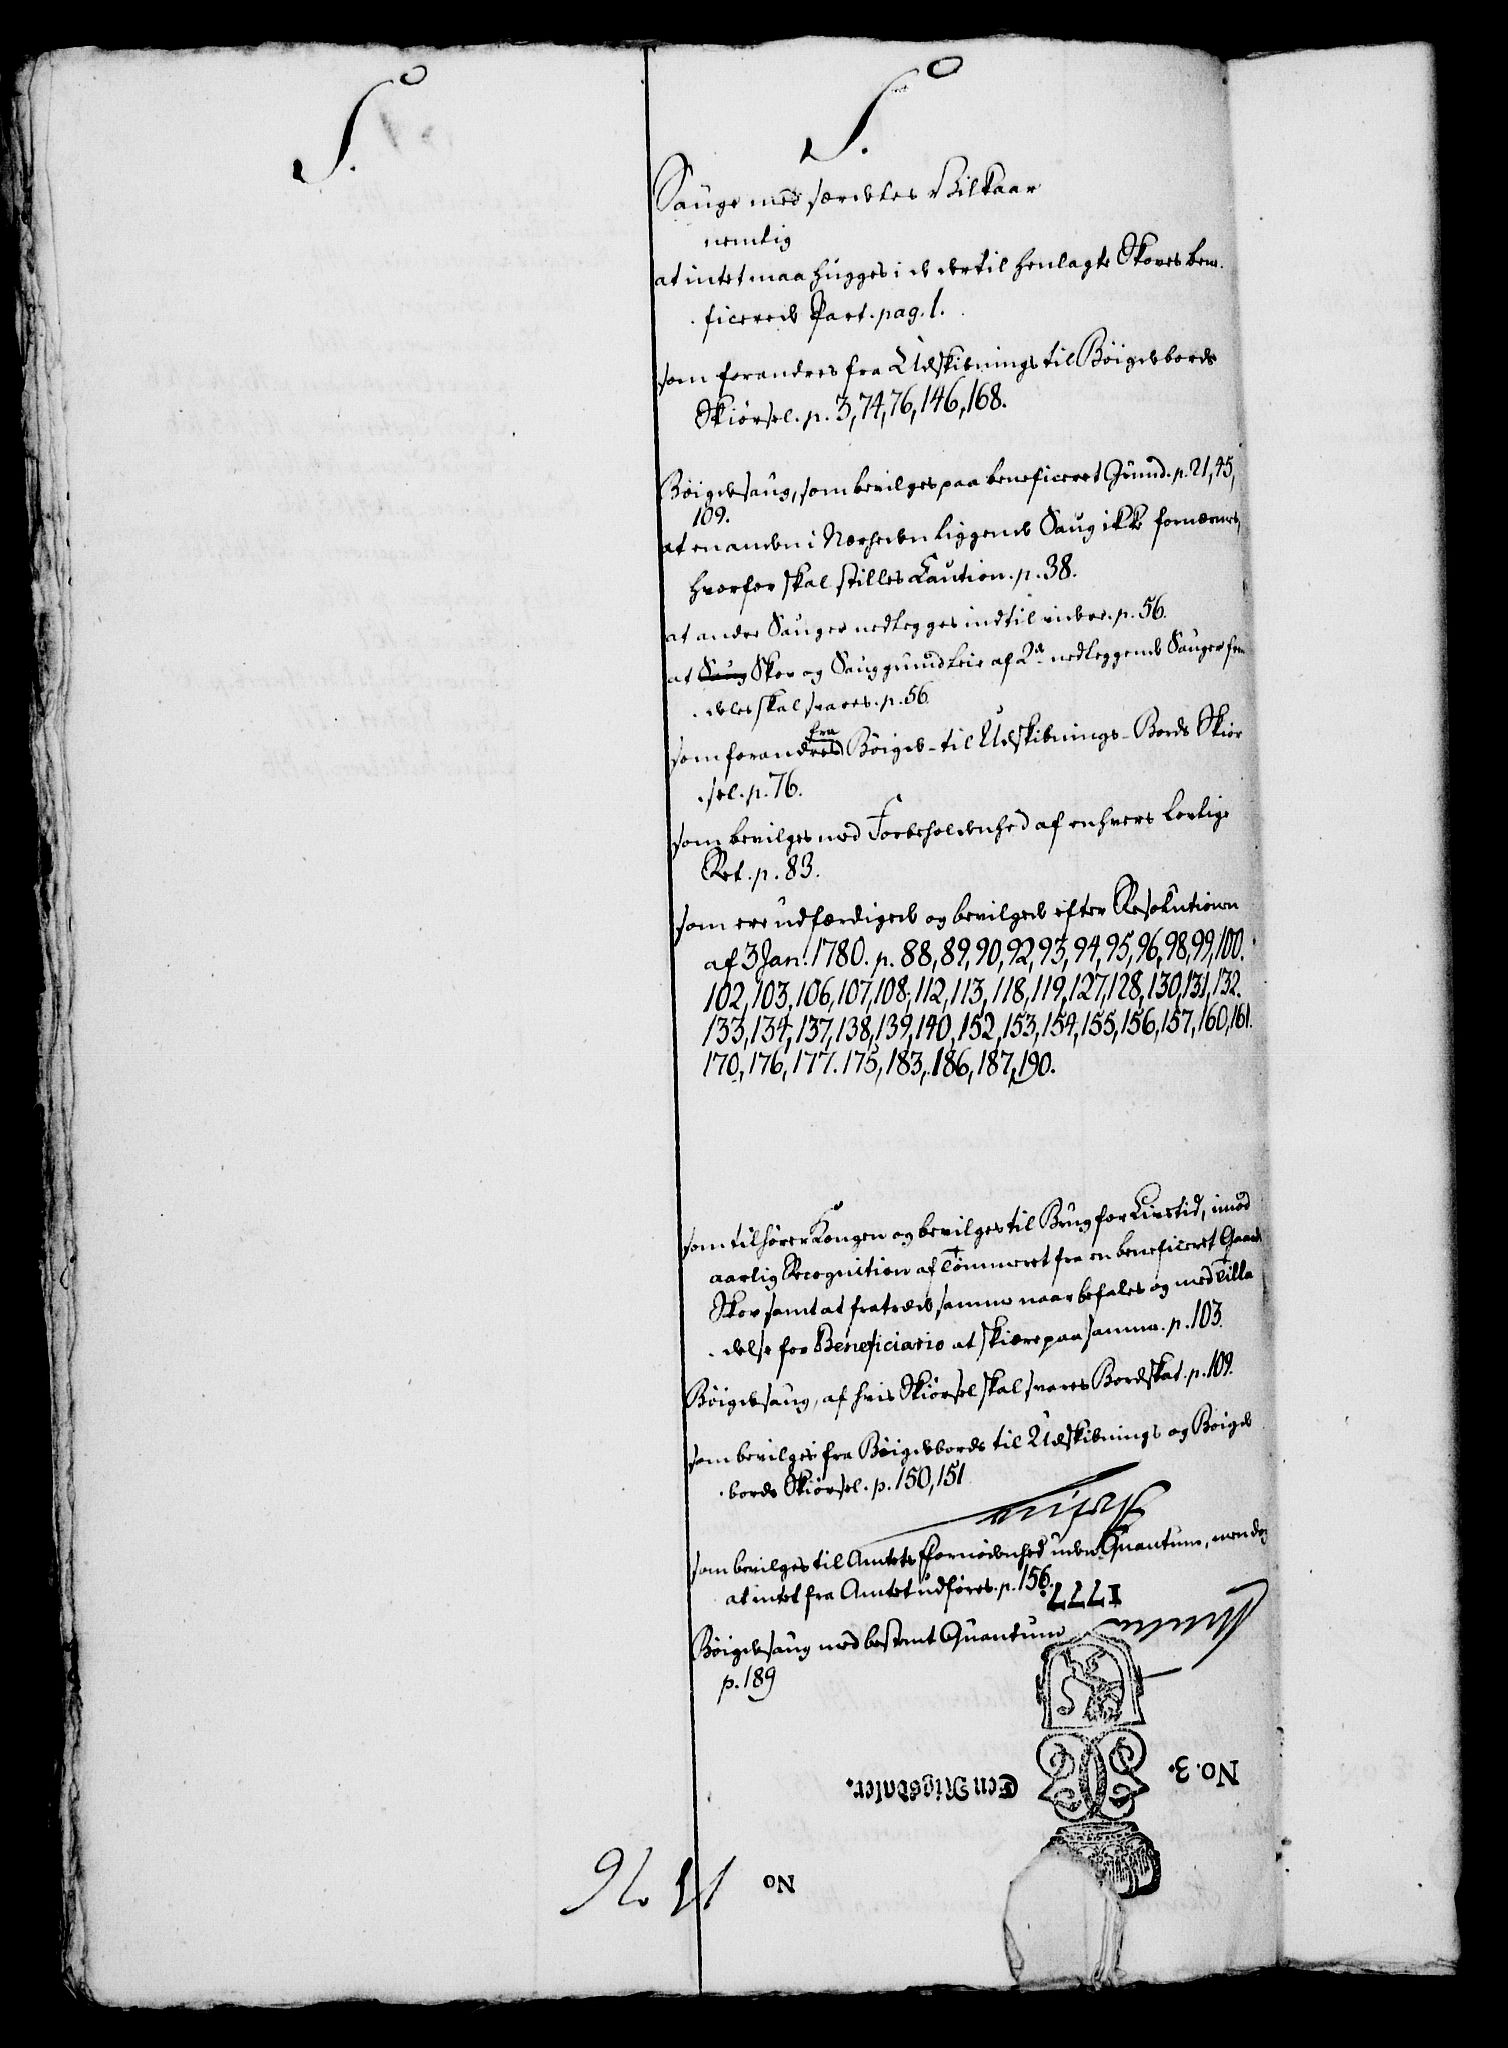 S.
S.
Sauge med særdeles Vilkaar
nemlig
at intet maa hugges i de dertil henlagte Skoves bene-
ficerede Part. pag. 1.
som forandres fra Udskibnings til Bøigdebords
Skiørsel. p. 3, 74, 76, 146, 168.
Bøigdesaug, som bevilges paa beneficeret Grund. p. 21, 45,
109.
at en anden i Nærheden liggende Saug ikke fornærmes,
hvorfor skal stilles Caution. p. 38.
at andre Sauger nedlegges indtil videre. p. 56.
at Saug Skov og Sauggrund Leie af 2de nedleggende Sauger frem
deles skal svares. p. 56
som forandres fra Bøigde- til Udskibnings-Bords Skiør
sel. p. 76.
som bevilges med Forbeholdenhed af enhvers lovlige
Ret. p. 83.
som ere udfærdigede og bevilgede efter Resolutionen
af 3 Jan. 1780. p. 88, 89, 90, 92, 93, 94, 95, 96, 98, 99, 100.
102, 103, 106, 107, 108, 112, 113, 118, 119, 127, 128, 130, 131, 132.
133, 134, 137, 138, 139, 140, 152, 153, 154, 155, 156, 157, 160, 161.
170, 176, 177. 175, 183, 186, 187, 190.
som tilhører Kongen og bevilges til Brug for Livstid, imod
aarlig Recognition af Tømmeret fra en beneficeret Gaards
Skov samt at fratræde samme naar befales og med Tilla
delse for Beneficiario at skiære paa samme. p. 103.
Bøigdesaug, af hvis Skiørsel skal svares Bordskat. p. 109.
som bevilges fra Bøigdebords til Udskibnings og Bøigde
bords Skiørsel. p. 150, 151
som bevilges til Amtets Fornødenhed uden Quantum, men dog
at intet fra Amtet udføres. p. 156.
1777.
Bøigdesaug med bestemt Quantum
p. 189
No. 3.
Een Rigsdaler.
No